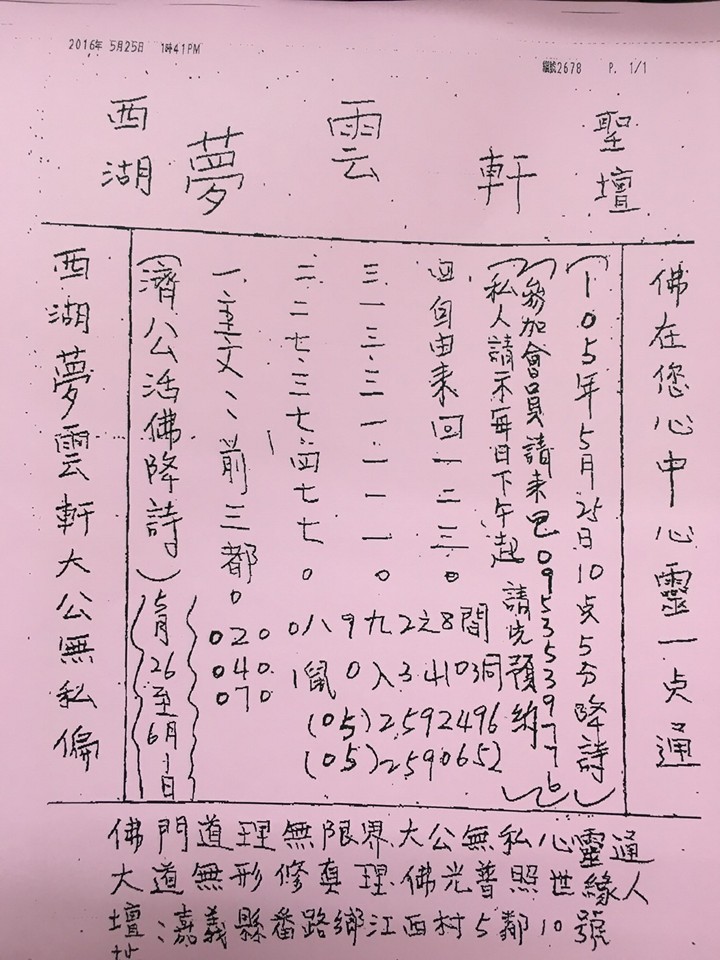 2016年 5月25日 1時41PM
編號2678 P. 1/1
西湖夢雲軒聖壇
佛在您心中心靈一点通
(105年5月25日10点5分降詩)
(參加會員請來電0953539776)
私人請示每日下午起 請先預約
四自由來回一二三0
三一三.三一一一一0
二二七.三七.四七七0
一.重文〻前三都0
(濟公活佛降詩)
5月26至6月1日
西湖夢雲軒大公無私偏
020
040
070
0八9九2之8間
1鼠0入3.4103洞
(05)2592496
(05)2590652
佛門道理無限界.大公無私心靈通
大道無形修真理.佛光普照世緣人
壇址:嘉義縣番路鄉江西村5鄰10號